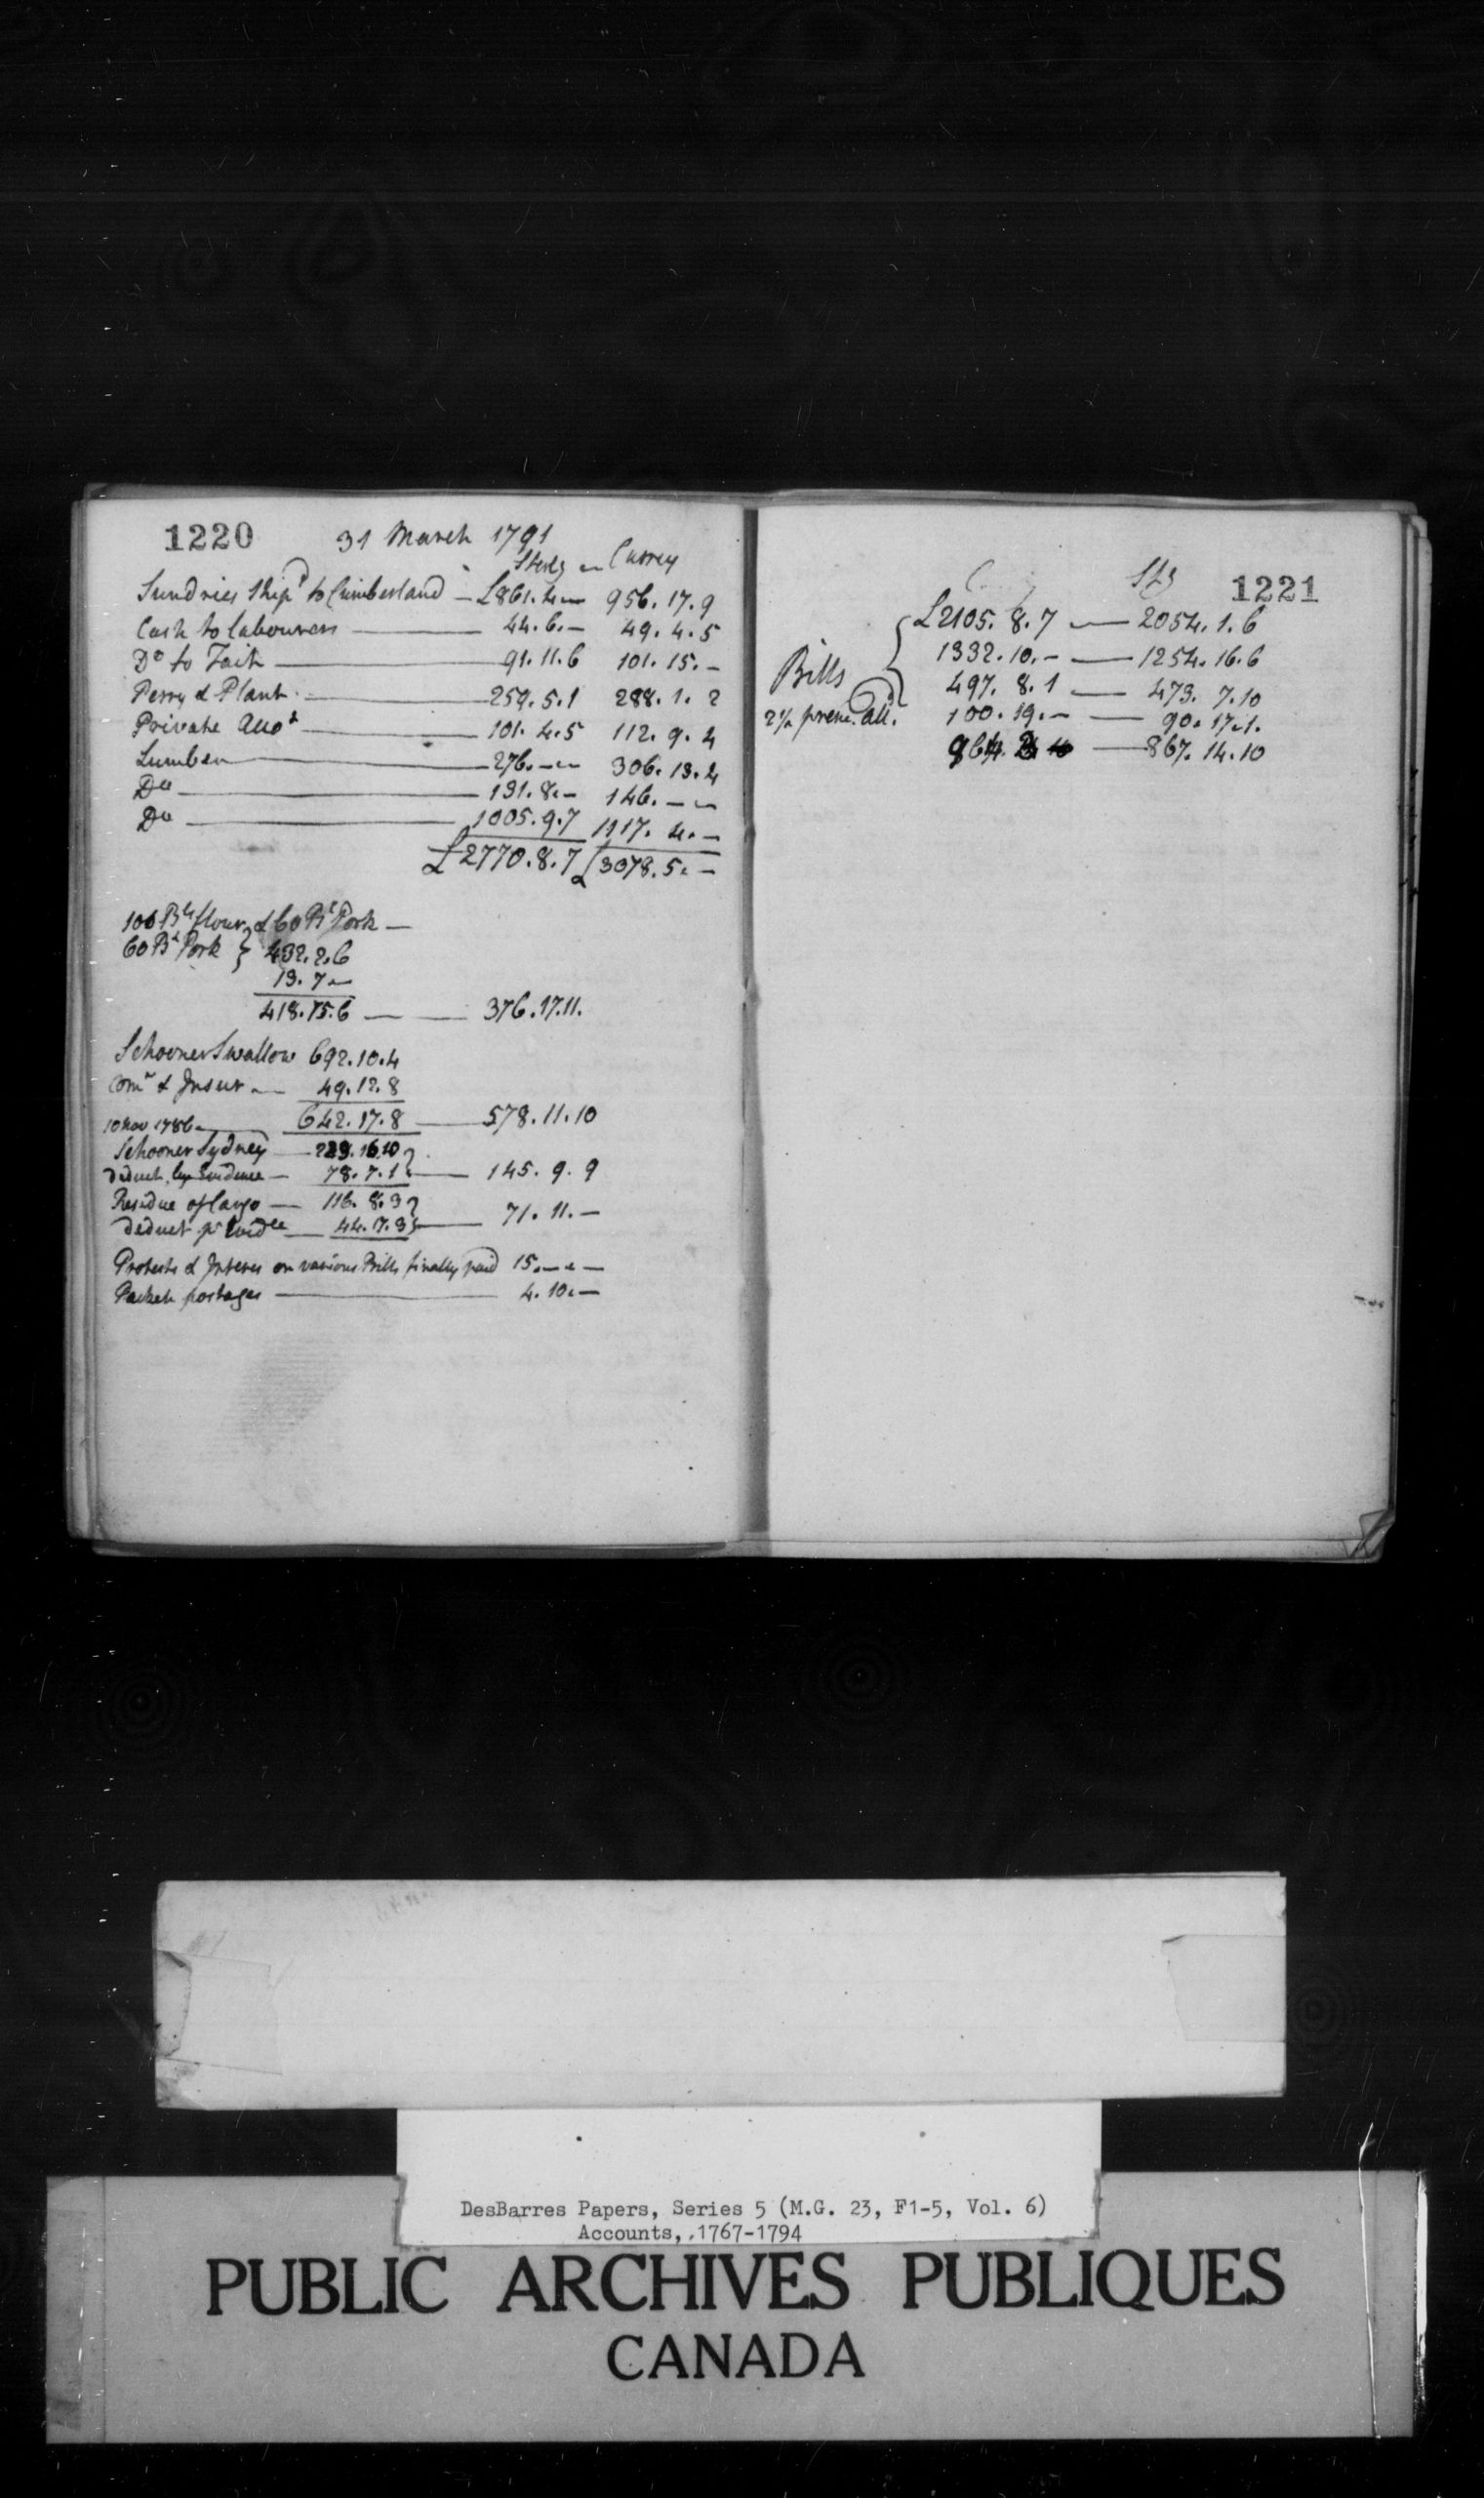 1220 31 March 1791
Sterlg Currey
Sundries Ship'd to Cumberland — £861.4.— 956.17.9
Cash to labourers — 44.6.— 49.4.5
Do to Tait — 91.11.6 101.15.—
Perry & Plant — 259.5.1 288.1.2
Private Acco't — 101.4.5 112.9.4
Lumber — 276.—.— 306.13.4
Do — 131.8.— 146.—.—
Do — 1005.9.7 1117.4.—
£2770.8.7 £3078.5.—
100 Bls flour & 60 Bls Pork —
60 Bls Pork } 432.2.6
13.7.—
418.15.6 — 376.17.11.
Schooner Swallow 692.10.4
Comn & Insur — 49.12.8
10 Nov 1786 — 642.17.8 — 578.11.10
Schooner Sydney — 16.10
Deduct — 78.7.1 — 145.9.9
Residue of Cargo — 116.8.3
Deduct pr — 44.17.3 — 71.11.—
Protests & Interes on various Bills finally paid 15.—.—
Packet postages — 4.10.—
1221
Stg
£2105.8.7 — 2054.1.6
1332.10.— — 1254.16.6
Bills 497.8.1 — 473.7.10
2½ prem. all. 100.19.— — 90.17.1.
964. — 867.14.10
DesBarres Papers, Series 5 (M.G. 23, F1-5, Vol. 6)
Accounts, 1767-1794
PUBLIC ARCHIVES PUBLIQUES
CANADA